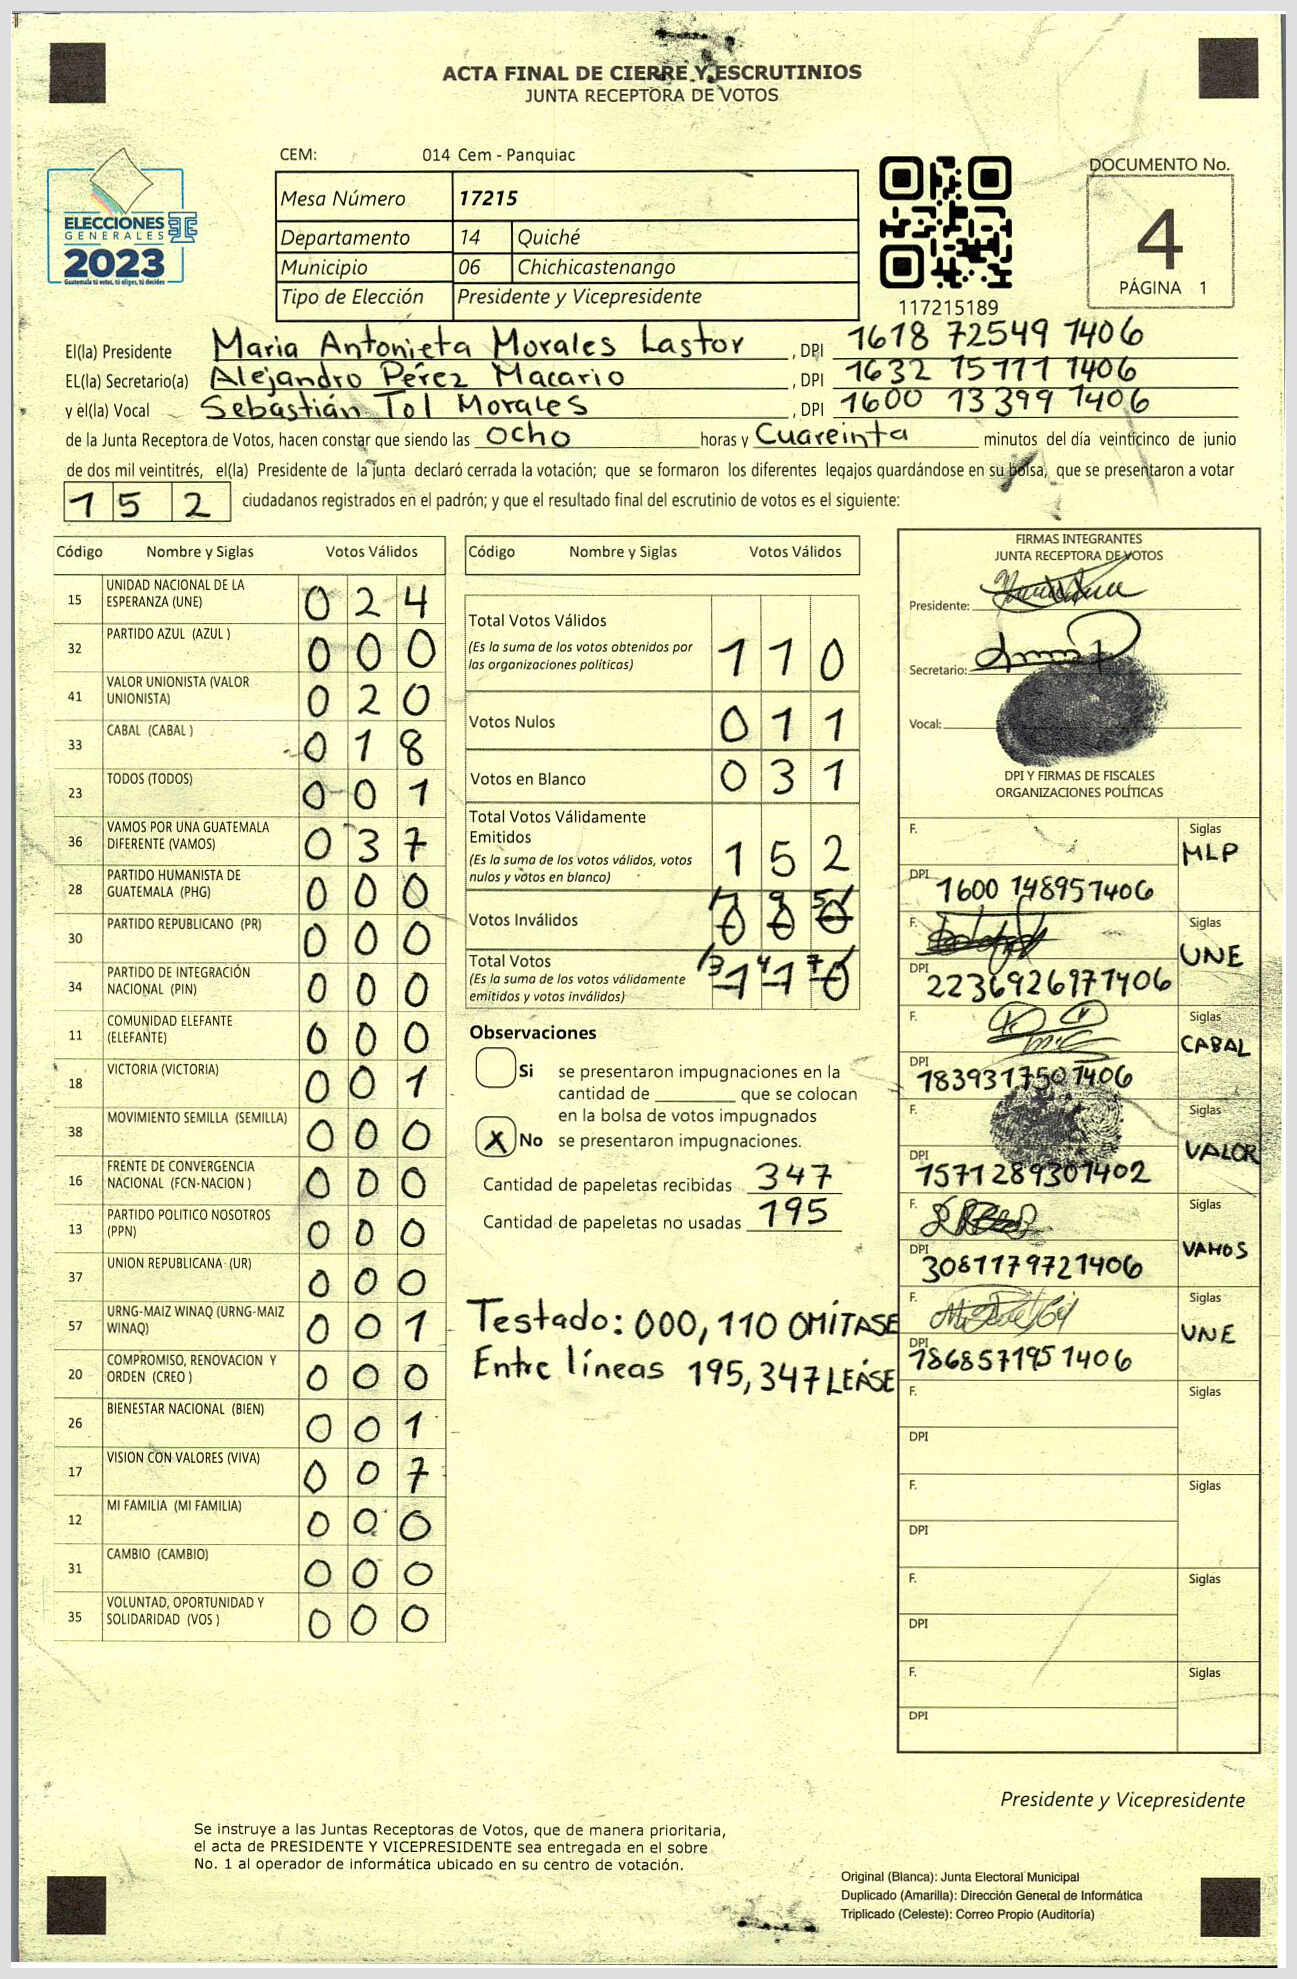 ACTA FINAL DE CIERRE Y ESCRUTINIOS
JUNTA RECEPTORA DE VOTOS
CEM: 014 Cem - Panquiac
ELECCIONES
GENERALES
2023
Guatemala tú votas, tú eliges, tú decides
Mesa Número 17215
Departamento 14 Quiché
Municipio 06 Chichicastenango
Tipo de Elección Presidente y Vicepresidente
117215189
DOCUMENTO No.
4
PÁGINA 1
El(la) Presidente Maria Antonieta Morales Lastor , DPI 1618 72549 1406
EL(la) Secretario(a) Alejandro Pérez Macario , DPI 1632 15111 1406
y el(la) Vocal Sebastián Tol Morales , DPI 1600 13399 1406
de la Junta Receptora de Votos, hacen constar que siendo las ocho horas y Cuareinta minutos del día veinticinco de junio
de dos mil veintitrés, el(la) Presidente de la junta declaró cerrada la votación; que se formaron los diferentes legajos guardándose en su bolsa, que se presentaron a votar
152 ciudadanos registrados en el padrón; y que el resultado final del escrutinio de votos es el siguiente:
Código Nombre y Siglas Votos Válidos
15 UNIDAD NACIONAL DE LA ESPERANZA (UNE) 024
32 PARTIDO AZUL (AZUL ) 000
41 VALOR UNIONISTA (VALOR UNIONISTA) 020
33 CABAL (CABAL ) 018
23 TODOS (TODOS) 001
36 VAMOS POR UNA GUATEMALA DIFERENTE (VAMOS) 037
28 PARTIDO HUMANISTA DE GUATEMALA (PHG) 000
30 PARTIDO REPUBLICANO (PR) 000
34 PARTIDO DE INTEGRACIÓN NACIONAL (PIN) 000
11 COMUNIDAD ELEFANTE (ELEFANTE) 000
18 VICTORIA (VICTORIA) 001
38 MOVIMIENTO SEMILLA (SEMILLA) 000
16 FRENTE DE CONVERGENCIA NACIONAL (FCN-NACION ) 000
13 PARTIDO POLITICO NOSOTROS (PPN) 000
37 UNION REPUBLICANA (UR) 000
57 URNG-MAIZ WINAQ (URNG-MAIZ WINAQ) 001
20 COMPROMISO, RENOVACION Y ORDEN (CREO ) 000
26 BIENESTAR NACIONAL (BIEN) 001
17 VISION CON VALORES (VIVA) 007
12 MI FAMILIA (MI FAMILIA) 000
31 CAMBIO (CAMBIO) 000
35 VOLUNTAD, OPORTUNIDAD Y SOLIDARIDAD (VOS ) 000
Código Nombre y Siglas Votos Válidos
Total Votos Válidos 110
(Es la suma de los votos obtenidos por
las organizaciones políticas)
Votos Nulos 011
Votos en Blanco 031
Total Votos Válidamente
Emitidos 152
(Es la suma de los votos válidos, votos
nulos y votos en blanco)
Votos Inválidos 195 000
Total Votos 347 110
(Es la suma de los votos válidamente
emitidos y votos inválidos)
Observaciones
Si se presentaron impugnaciones en la
cantidad de que se colocan
en la bolsa de votos impugnados
X No se presentaron impugnaciones.
Cantidad de papeletas recibidas 347
Cantidad de papeletas no usadas 195
Testado: 000, 110 OMÍTASE
Entre líneas 195, 347 LEÁSE
FIRMAS INTEGRANTES
JUNTA RECEPTORA DE VOTOS
Presidente:
Secretario:
Vocal:
DPI Y FIRMAS DE FISCALES
ORGANIZACIONES POLÍTICAS
F. Siglas
MLP
DPI 1600 148951406
F. Siglas
UNE
DPI 2236926971406
F. Siglas
CABAL
DPI 1839317501406
F. Siglas
VALOR
DPI 1571289301402
F. Siglas
VAMOS
DPI 3081179721406
F. Siglas
UNE
DPI 1868571951406
F. Siglas
DPI
F. Siglas
DPI
F. Siglas
DPI
F. Siglas
DPI
Presidente y Vicepresidente
Se instruye a las Juntas Receptoras de Votos, que de manera prioritaria,
el acta de PRESIDENTE Y VICEPRESIDENTE sea entregada en el sobre
No. 1 al operador de informática ubicado en su centro de votación.
Original (Blanca): Junta Electoral Municipal
Duplicado (Amarilla): Dirección General de Informática
Triplicado (Celeste): Correo Propio (Auditoría)